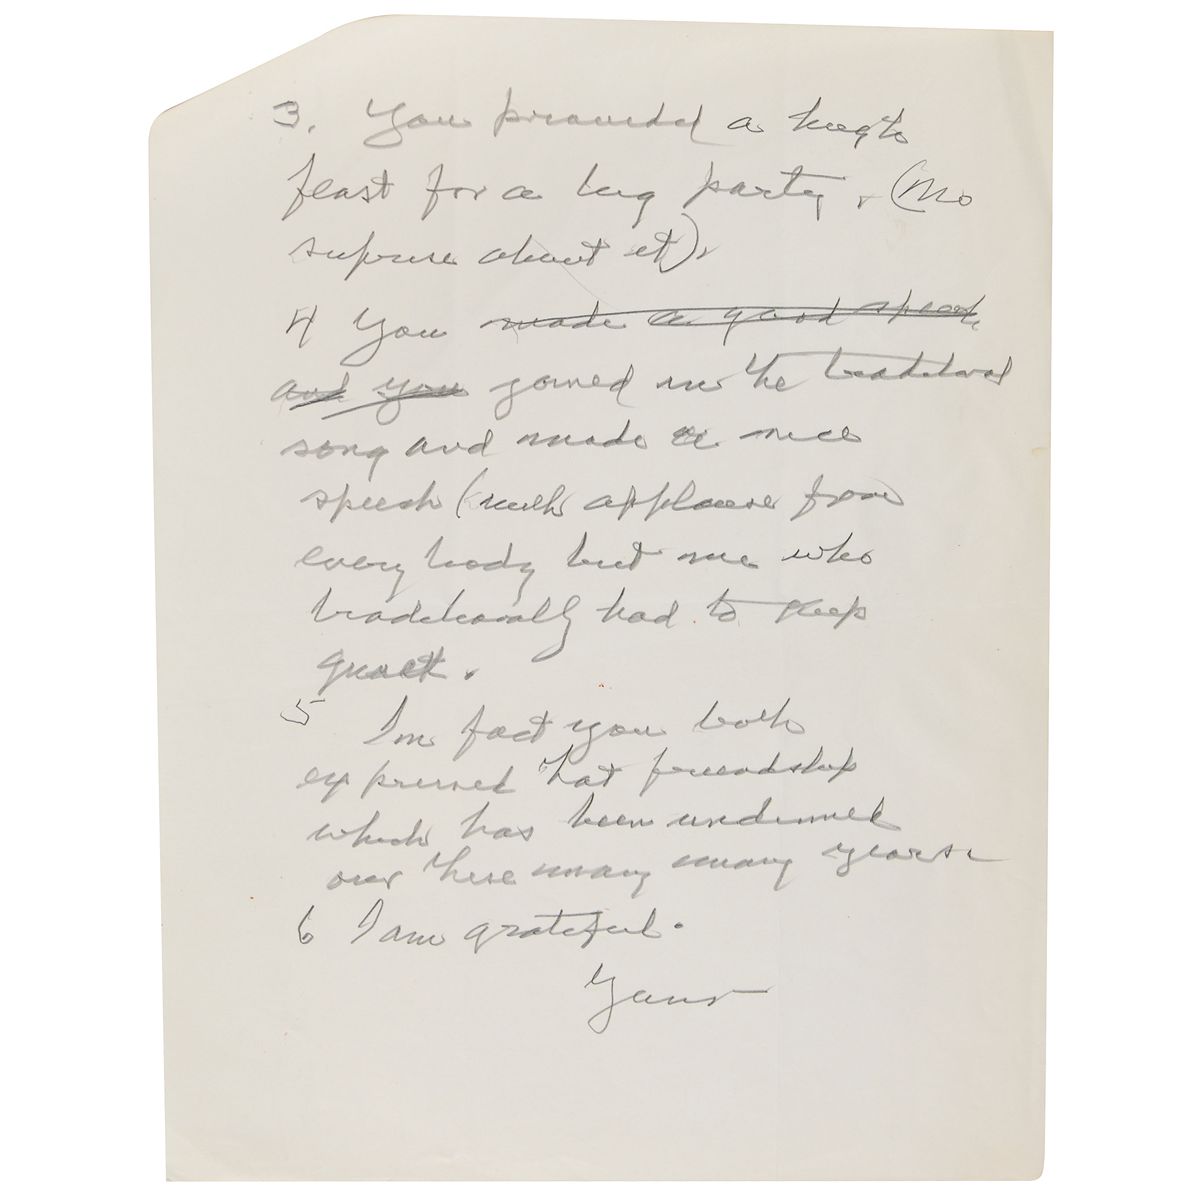 3. You provided a
feast for a big party, (no
suprise about it).
4 You made a good speech
and you joined in the traditional
song and made a nice
speech (with applause from
every body but me who
traditionally had to keep
quiet.
5 In fact you both
expressed that friendship
which has been undimmed
over these many many years.
6 I am grateful.
Yours